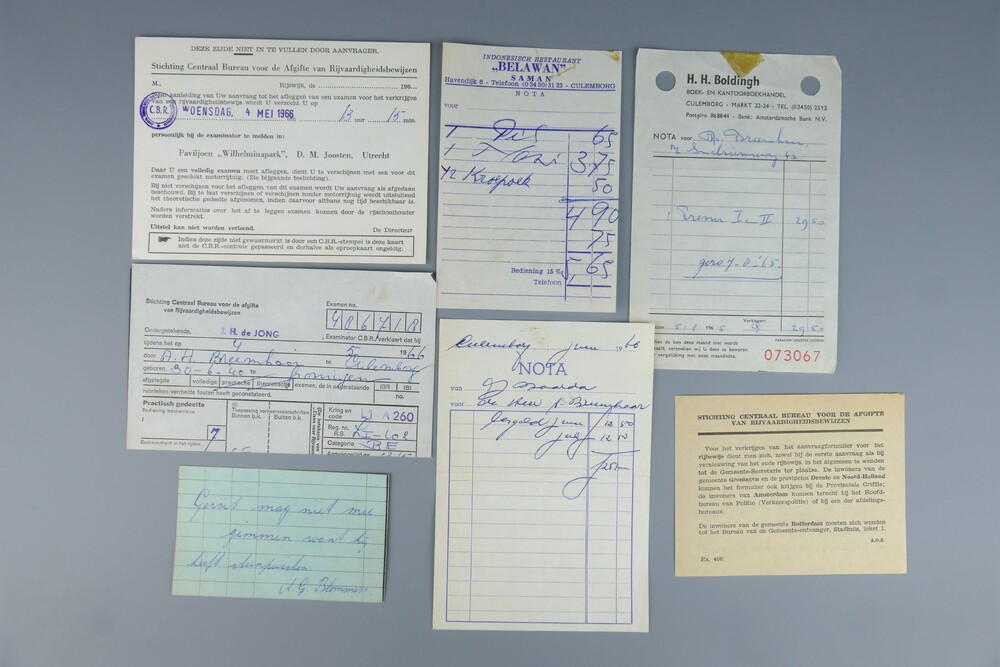 DEZE ZIJDE NIET IN TE VULLEN DOOR AANVRAGER.
Stichting Centraal Bureau voor de Afgifte van Rijvaardigheidsbewijzen
M., Rijswijk, de 196
aanleiding van Uw aanvraag tot het afleggen van een examen voor het verkrijgen
van een rijvaardigheidsbewijs wordt U verzocht U op
C.B.R. WOENSDAG, 4 MEI 1966 om 13 uur 15 min.
persoonlijk bij de examinator te melden in:
Paviljoen „Wilhelminapark", D. M. Joosten, Utrecht
Daar U een volledig examen moet afleggen, dient U te verschijnen met een voor dit
examen geschikt motorrijtuig. (Zie bijgaande toelichting).
Bij niet verschijnen voor het afleggen van dit examen wordt Uw aanvraag als afgedaan
beschouwd. Bij te laat verschijnen of verschijnen zonder motorrijtuig wordt uitsluitend
het theoretische gedeelte afgenomen, indien daarvoor althans nog tijd beschikbaar is.
Nadere informaties over het af te leggen examen kunnen door de rijschoolhouder
worden verstrekt.
Uitstel kan niet worden verleend. De Directeur
Indien deze zijde niet gewaarmerkt is door een C.B.R.-stempel is deze kaart
niet de C.B.R.-controle gepasseerd en derhalve als oproepkaart ongeldig.
INDONESISCH RESTAURANT
„BELAWAN"
SAMAN
Havendijk 6 - Telefoon (03450) 31 23 - CULEMBORG
NOTA
voor
1 65
1 3.75
1/2 Kroepoek 50
4 90
75
5 65
Bediening 15 %
Telefoon
H. H. Boldingh
BOEK- EN KANTOORBOEKHANDEL
CULEMBORG - MARKT 22-24 - TEL. (03450) 2512
Postgiro 868844 - Bank: Amsterdamsche Bank N.V.
NOTA voor
1 I - II 29.50
7-8-'65
Verkoper:
1965 29 50
bij de kan deze maand niet wordt
betaald, verzoeken wij U deze te bewaren
vergelijking met onze maandnota.
073067
Stichting Centraal Bureau voor de afgifte
van Rijvaardigheidsbewijzen
Examen no.
406718
Ondergetekende, H. de JONG Examinator C.B.R. verklaart dat hij
tijdens het op 4 5 1966
door A. H. Breemhaar te Culemborg
geboren 30-6-40 te Groningen
afgelegde volledig praktische theoretische examen, de in onderstaande
rubrieken vermelde fouten heeft geconstateerd.
Praktisch gedeelte
Bediening mechanisme
7
Bedrevenheid in het rijden
Toepassing verkeersvoorschriften
Binnen b.k. Buiten b.k.
Kring en
code L1 A 260
Reg. nr.
R.S.
Categorie BE
no.
Culemborg juni 1966
NOTA
van
voor De Heer A. Breemhaar
Lesgeld juni 12.50
juli 12.50
STICHTING CENTRAAL BUREAU VOOR DE AFGIFTE
VAN RIJVAARDIGHEIDSBEWIJZEN
Voor het verkrijgen van het aanvraagformulier voor het
rijbewijs dient men zich, zowel bij de eerste aanvraag als bij
vernieuwing van het oude rijbewijs, in het algemeen te wenden
tot de Gemeente-Secretarie ter plaatse. De inwoners van de
gemeente Groningen en de provincies Drente en Noord-Holland
kunnen het formulier ook krijgen bij de Provinciale Griffie;
de inwoners van Amsterdam kunnen terecht bij het Hoofd-
bureau van Politie (Verkeerspolitie) of bij een der afdelings-
bureaus.
De inwoners van de gemeente Rotterdam moeten zich wenden
tot het Bureau van de Gemeente-ontvanger, Stadhuis, loket 1.
z.o.z.
Ex. 406
Gerrit mag niet mee
gimmen want hij
heeft steenpuisten
A. G. Blommers